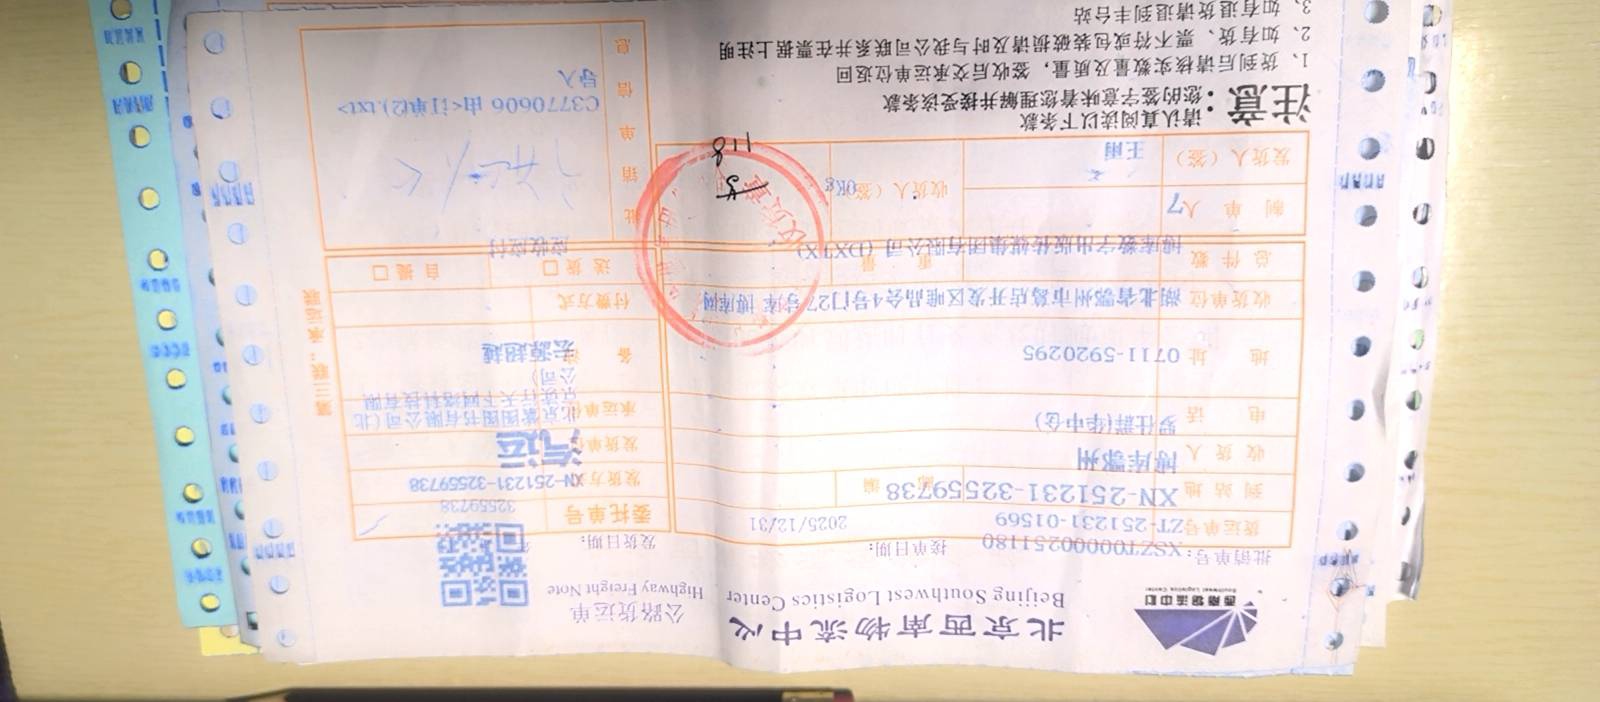 西南物流中心
Southwest Logistics Center
北京西南物流中心
Beijing Southwest Logistics Center
公路货运单
Highway Freight Note
批销单号：XSZT0000251180
接单日期：
发货日期：
货运单号ZT-251231-01569
2025/12/31
委托单号
32559738
到站地
XN-251231-32559738
编
发货方
XN-251231-32559738
收货人
博库鄂州
发货单位
汽运
电话
罗仕群(华中仓)
承运单位
北京紫图图书有限公司(北
京读行天下网络科技有限
公司)
地址
0711-5920295
备
宏源超越
收货单位
湖北省鄂州市葛店开发区唯品会4号门27号库 博库网
付费方式
总件数
博库数字出版传媒集团有限公司 (DXTX)
重量
送货口
自提口
应收应付
制单人
7
收货人（签）
0Kg
发货人（签）
王雨
118
批销单信息
C3770606 由<订单(2).txt>
导入
注意：
请认真阅读以下条款
您的签字意味着您理解并接受该条款
1、货到后请核实数量及质量，签收后交承运单位返回
2、如有货、票不符或包装破损请及时与我公司联系并在票据上注明
3、如有退货请退到丰台站
第三联：承运联